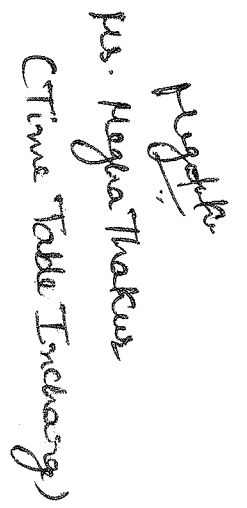 Ms. Megha Thakur
(Time Table Incharg)